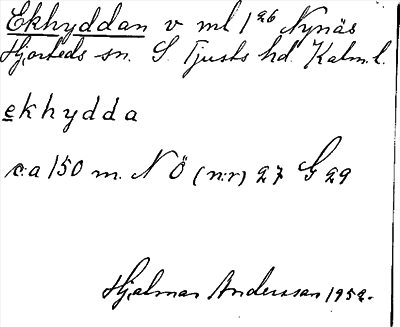 Ekhyddan v ml 1²⁶ Nynäs
Hjorteds sn. S. Tjusts hd. Kalm. l.
ekhydda
c:a 150 m. N Ö (n:r) 27 G 29
Hjalmar Andersson 1952.